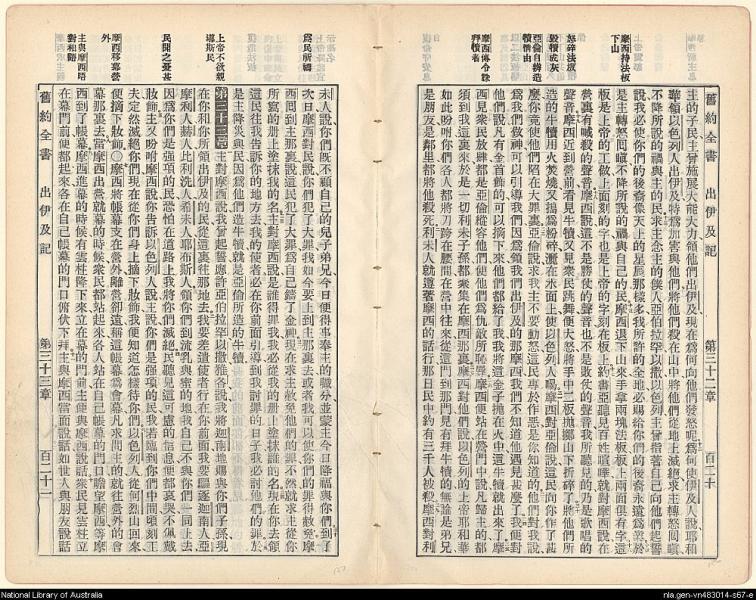 舊約全書 出伊及記 第三十二章 百二十
摩西持法板下山
怒碎法板
毀犢成灰
亞倫自辨造犢情由
摩西傳令誅拜犢者
主的子民主曾施展大能大力領他們出伊及現在爲何向他們發怒呢爲何使伊及人說耶和
華領以色列人出伊及特爲加害與他們將他們殺在山中將他們從地上滅絕求主轉怒回嗔
不降所說的禍與主的民求主念主的僕人亞伯拉罕以撒以色列主曾指著自己向他們起誓
說我必使你們的後裔像天上的星辰那樣多我所許的全地必賜給你們的後裔永遠爲業於
是主轉怒回嗔不降所說的禍與自己的民摩西退下山來手拿兩塊法板板上兩面俱有字這
板是上帝的工做上面刻的字也是上帝的字刻在板上約書亞聽見百姓喧嘩就對摩西說
營裏有喊殺的聲音摩西說這不是勝仗的聲音也不是敗仗的聲音我所聽見的乃是歌唱的
聲音摩西近到營前看見牛犢又見衆民跳舞便大怒將手中二板拋擲山下摔碎了將他們所
造的牛犢用火焚燒又搗爲粉碎灑在水面上使以色列人喝摩西對亞倫說這民向你作了甚
麼你竟使他們陷在大罪裏亞倫說求我主不要動怒這民專於作惡是你知道的他們對我說
你爲我們做神可以引導我們因爲領我們出伊及的那摩西我們不知道他遇見甚麼了我便對
他們說凡有金首飾的可以摘下來他們都給了我我將這金子拋在火中這牛犢就出來了摩
西見衆民放肆都是亞倫縱容他們使他們爲仇敵所恥辱摩西便站在營門中說凡歸主的都
須到我這裏來於是一切利未子孫都聚集在摩西那裏摩西對他們說以色列的上帝耶和華
如此吩咐你們各人都將刀跨在腰間在營中往來從這門到那門見有拜牛犢的無論是弟兄
是朋友是鄰里都將他殺死利未人就遵著摩西的話行那日民中約有三千人被殺摩西對利
爲民祈禱
上帝不欲親導斯民
民聞之憂甚
摩西移幕營外
主與摩西晤對和睦
未人說你們旣不顧自己的兒子弟兄今日便得事奉主的職分並蒙主今日降福與你們到了
次日摩西對民說你們犯了大罪我如今要上到主那裏去或者我可以使你們的罪得赦免摩
西回到主那裏說這民犯了大罪爲自己鑄了金神現在求主赦免他們的罪不然就求主從你
所寫的册上塗抹我的名主對摩西說是誰得罪我我必從我的册上塗抹誰的名現在你去領
這民往我告訴你的地方去我的使者必在你前面引導到我討罪的日子我必討他們的罪於
是主降災與民因爲他們造牛犢就是亞倫所造的牛犢
第三十三章 主對摩西說我曾起誓應許亞伯拉罕以撒雅各說我將迦南地賜與你們子孫現
在你和你所領出伊及的民從這裏往那地去我要差遣使者行在你前面我要驅逐迦南人亞
摩利人赫人比利洗人希未人耶布斯人領你們到流乳與蜜的地我自己不與你們一同上去
因爲你們是強項的民恐怕在道路上我將你們滅絕民聽見這可慮的信息便都哀哭不佩戴
妝飾主又吩咐摩西說你告訴以色列人說主說你們是強項的民我若臨你們中間頃刻工
夫定然滅絕你們現在從你們身上摘下妝飾我便知道怎樣待你們以色列人從何烈山回來
便摘下妝飾〇摩西將帳幕支在營外離營卻遠稱這帳幕爲會幕凡求問主的就往營外的會
幕那裏去當摩西出營就幕的時候衆民都站起來各人站在自己帳幕的門口瞻望摩西等摩
西到了帳幕摩西進幕的時候有雲柱降下來立在幕的門前主便與摩西說話衆民見雲柱立
在幕門前便都起來各在自己帳幕的門口俯伏下拜主與摩西當面說話如世人與朋友說話
舊約全書 出伊及記 第三十三章 百二十一
National Library of Australia
nla.gen-vn483014-s67-e